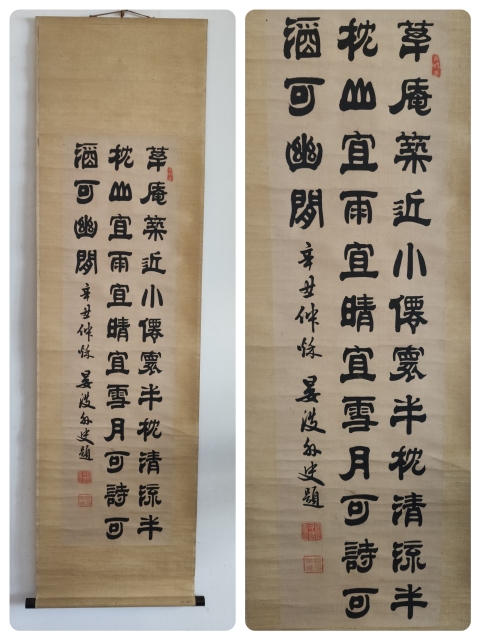 草庵築近小僊寰半枕清流半
枕山宜雨宜晴宜雪月可詩可
酒可幽閒 辛丑仲秋 外史題
草庵築近小僊寰半枕清流半
枕山宜雨宜晴宜雪月可詩可
酒可幽閒 辛丑仲秋 外史題